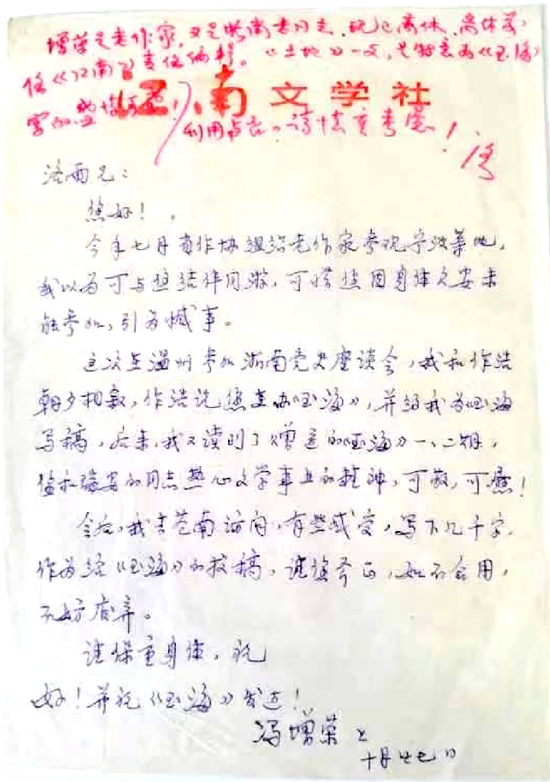 增荣是老作家，又是浙南老同志，现已离休，离休前
任《江南》责任编辑。《土地》一文，是特意为《玉海》
写的，
江南文学社
请慎重考虑！
洛雨兄：
您好！
今年七月省作协组织老作家参观宁波等地，
我以为可与您结伴同游，可惜您因身体欠安未
能参加，引为憾事。
这次在温州参加浙南党史座谈会，我和作浩
朝夕相叙，作浩说您主办《玉海》，并约我为《玉海》
写稿，后来，我又读到了赠送的《玉海》一、二期，
您和瑞安的同志热心文学事业的精神，可敬，可感！
会后，我去苍南访问，有些感受，写下几千字，
作为给《玉海》的投稿，请您斧正，如不合用，
不妨废弃。
请保重身体，祝
好！并祝《玉海》发达！
冯增荣上
十月廿七日